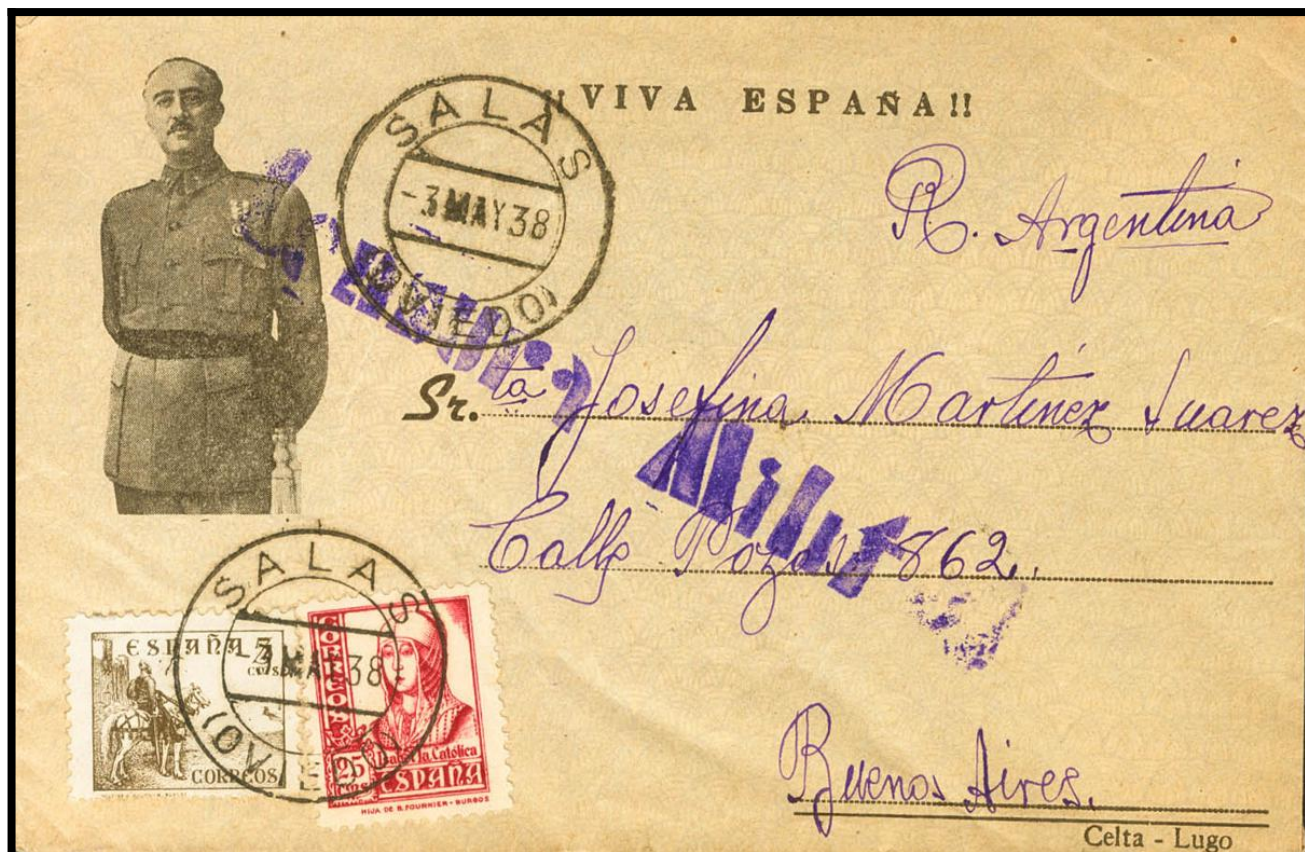 ¡¡VIVA ESPAÑA!!
SALAS
-3 MAY 38
(OVIEDO)
R. Argentina
Sr.ta Josefina Martínez Suarez
Calle Pozos 1862.
Buenos Aires.
Celta - Lugo
SALAS
-3 MAY 38
(OVIEDO)
ESPAÑA 5
CTS
CORREOS
CORREOS
25
CTS
Isabel la Católica
ESPAÑA
HIJA DE B. FOURNIER - BURGOS